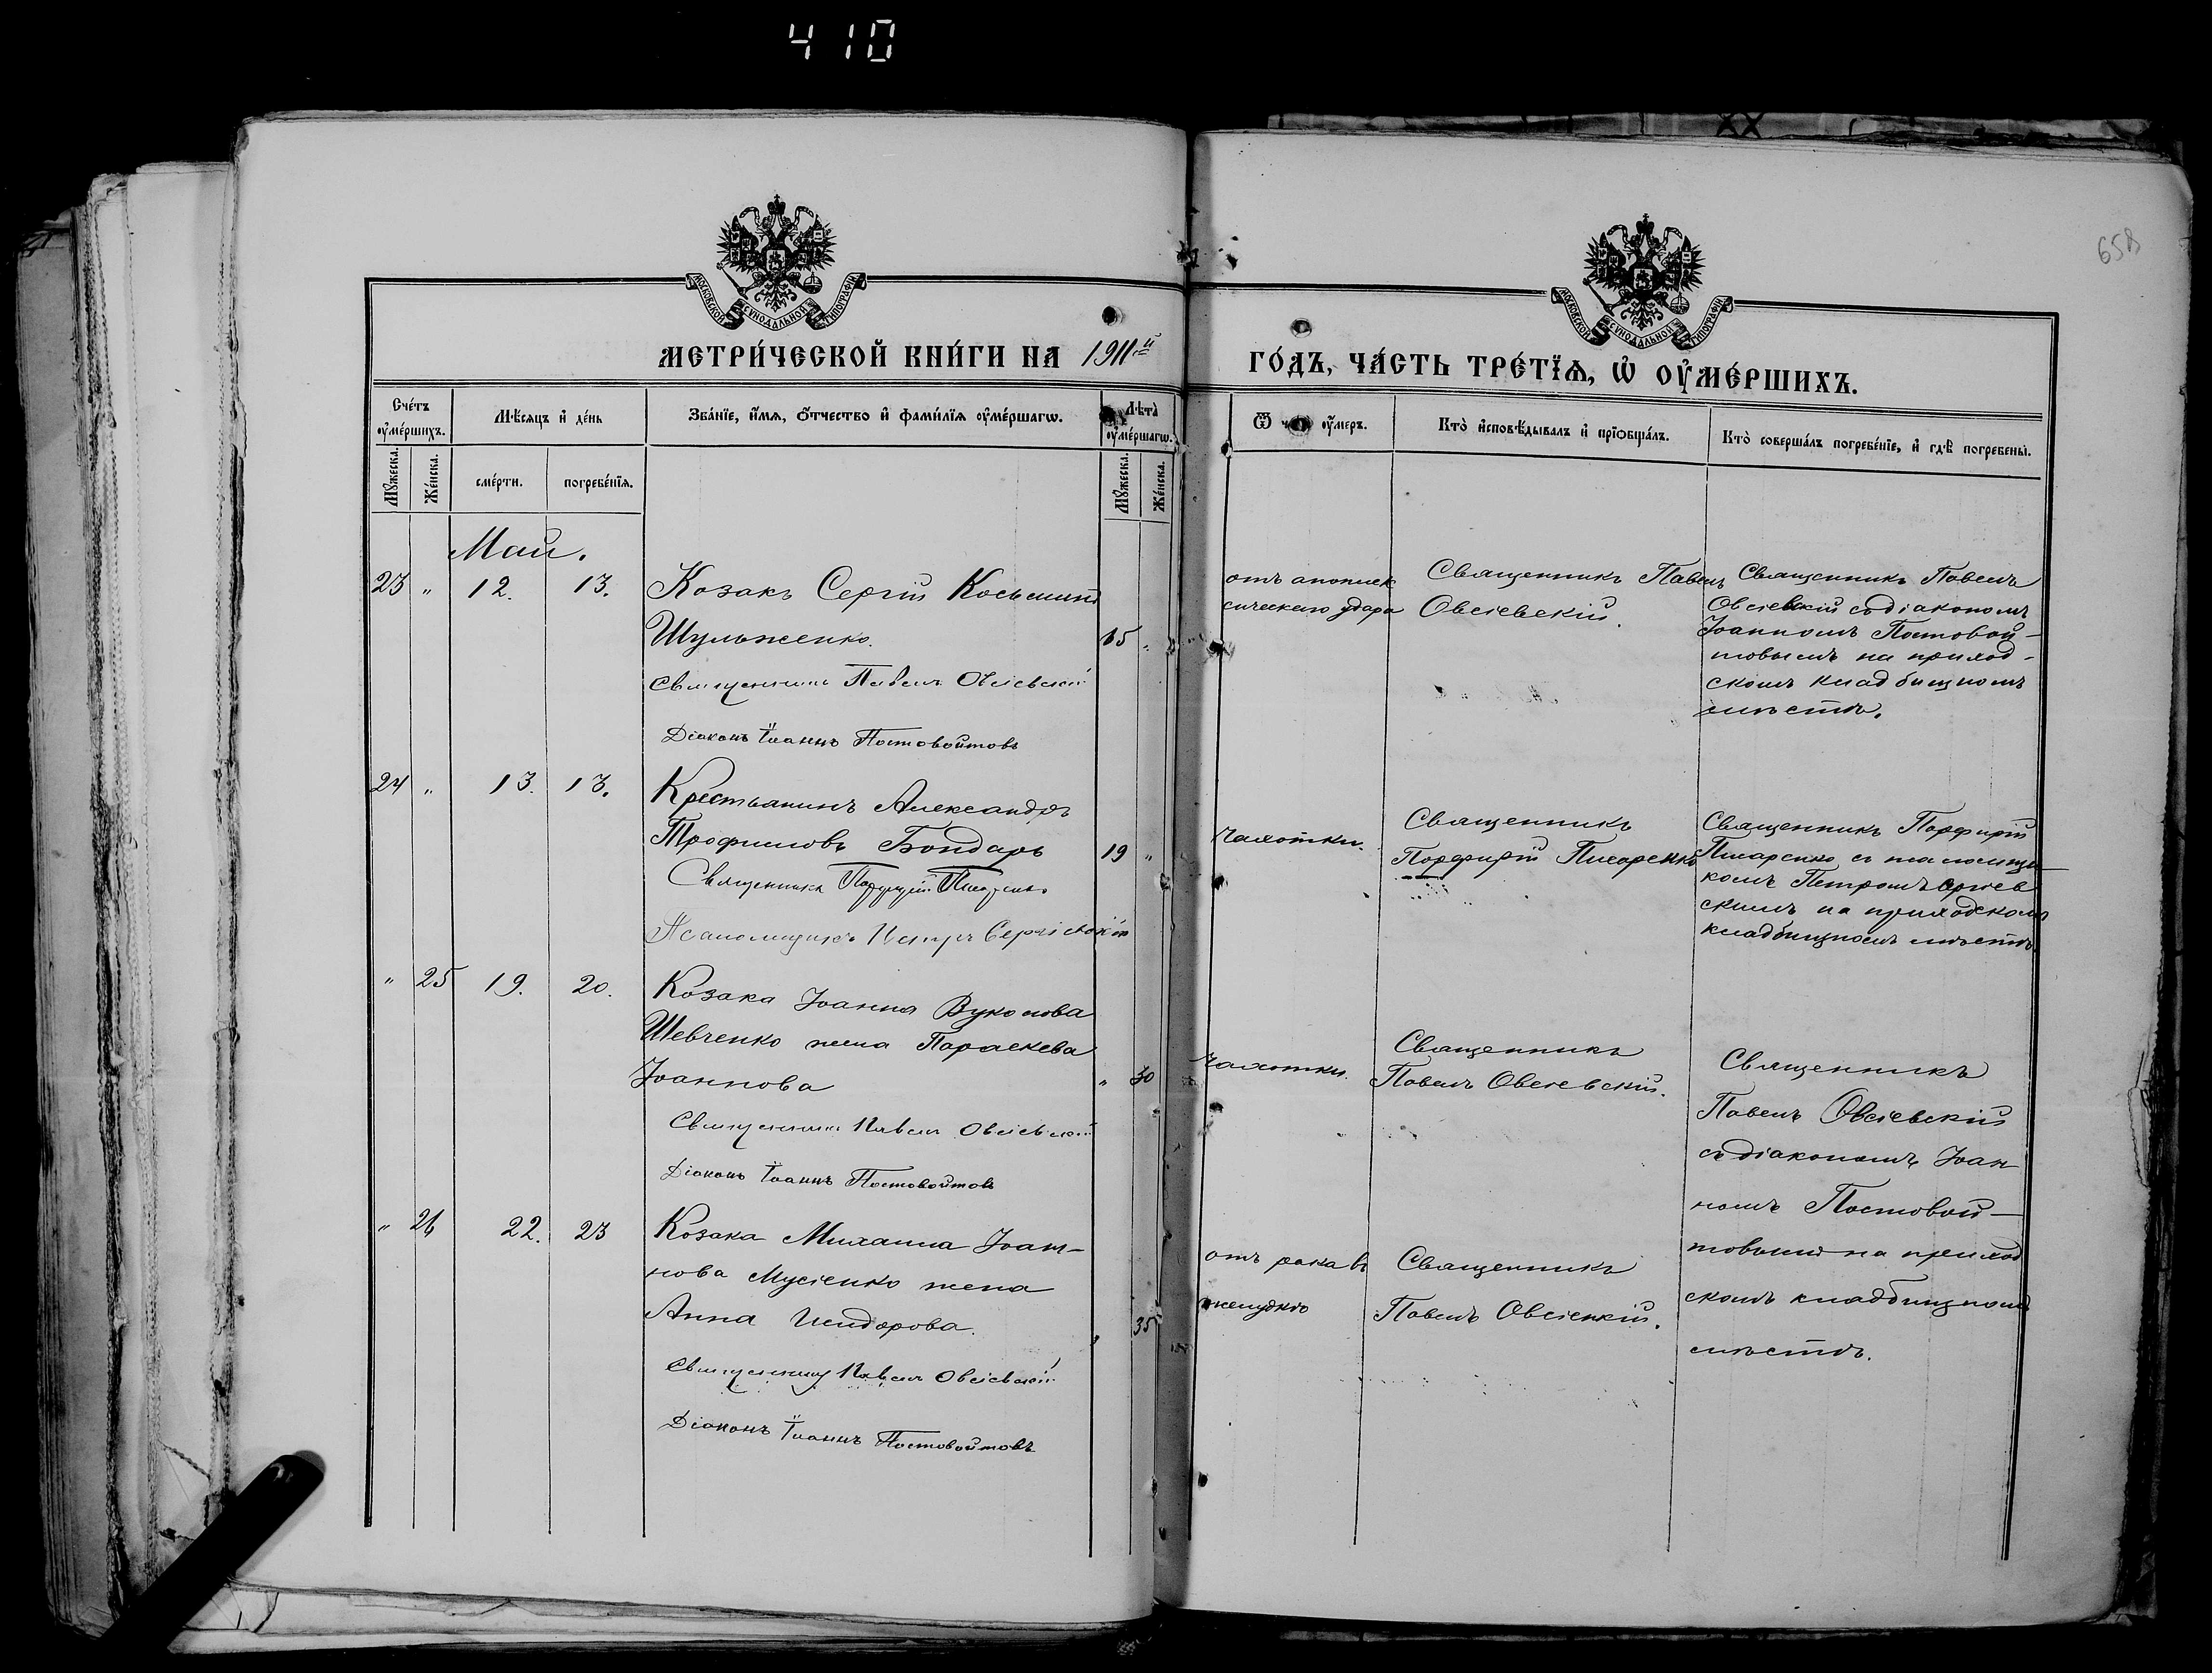 410
658
МОСКОВСКОЙ СѴНОДАЛЬНОЙ ТИПОГРАФІИ
МОСКОВСКОЙ СѴНОДАЛЬНОЙ ТИПОГРАФІИ
МЕТРИ́ЧЕСКОЙ КНИ́ГИ НА 1911-й
ГО́ДЪ, ЧА́СТЬ ТРЕ́ТЇѦ, Ѡ҆ ОУ҆МЕ́РШИХЪ.
Сче́тъ оу҆ме́ршихъ.
Мѣ́сяцъ и҆ де́нь
Зва́нїе, и҆́мѧ, ѻ҆́тчество и҆ фами́лїѧ оу҆ме́ршагѡ.
Лѣта̀ оу҆ме́ршагѡ.
Ѿ оу҆́меръ.
Кто̀ и҆сповѣ́дывалъ и҆ прїѡбща́лъ.
Кто̀ соверша́лъ погребе́нїе, и҆ гдѣ̀ погребены̀.
Мꙋ́жеска.
Же́нска.
сме́рти.
погребе́нїѧ.
Мꙋ́жеска.
Же́нска.
Май.
23 " 12. 13. Козакъ Сергій Косьминъ
Шульженко. "
Священникъ Павелъ Овсіевскій
Діаконъ Іоаннъ Постовойтовъ
отъ апоплек
сическаго удара
Священникъ Павелъ
Овсіевскій.
Священникъ Павелъ
Овсіевскій съ діакономъ
Іоанномъ Постовой-
товымъ на приход-
скомъ кладбищномъ
мѣстѣ.
24 " 13. 13. Крестьянинъ Александръ
Трофимовъ Бондарь 19 "
Священникъ Порфирій Писаренко
Псаломщикъ Петръ Сергіевскій
Чахотки.
Священникъ
Порфирій Писаренко
Священникъ Порфирій
Писаренко съ псаломщи-
комъ Петромъ Сергіев
скимъ на приходскомъ
кладбищномъ мѣстѣ
" 25 19. 20. Козака Іоанна Вуколова
Шевченко жена Параскева
Іоаннова " 30
Священникъ Павелъ Овсіевскій
Діаконъ Іоаннъ Постовойтовъ
Чахотки.
Священникъ
Павелъ Овсіевскій.
Священникъ
Павелъ Овсіевскій
съ діакономъ Іоан
номъ Постовой-
товымъ на приход
скомъ кладбищномъ
мѣстѣ.
" 26 22. 23 Козака Михаила Іоан-
нова Мусіенко жена
Анна Исидорова. " 35
Священникъ Павелъ Овсіевскій
Діаконъ Іоаннъ Постовойтовъ
отъ рака въ
желудкѣ
Священникъ
Павелъ Овсіевскій.